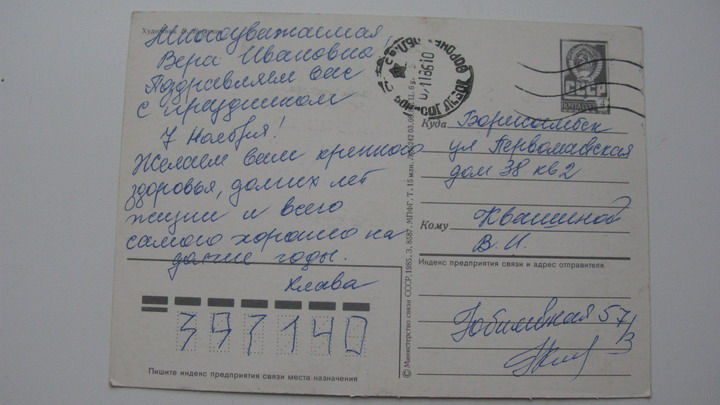 Многоуважаемая
Вера Ивановна!
Поздравляем вас
с праздником
7 Ноября!
Желаем вам крепкого
здоровья, долгих лет
жизни и всего
самого хорошего на
долгие годы.
Клава
397140
Пишите индекс предприятия связи места назначения
© Министерство связи СССР. 1985. З. 8587. МПФГ. Т. 15 млн.
СССР
Куда Борисоглебск
ул Первомайская
дом 38 кв 2
Кому Квашиной
В. И.
Индекс предприятия связи и адрес отправителя
Юбилейная 57/3